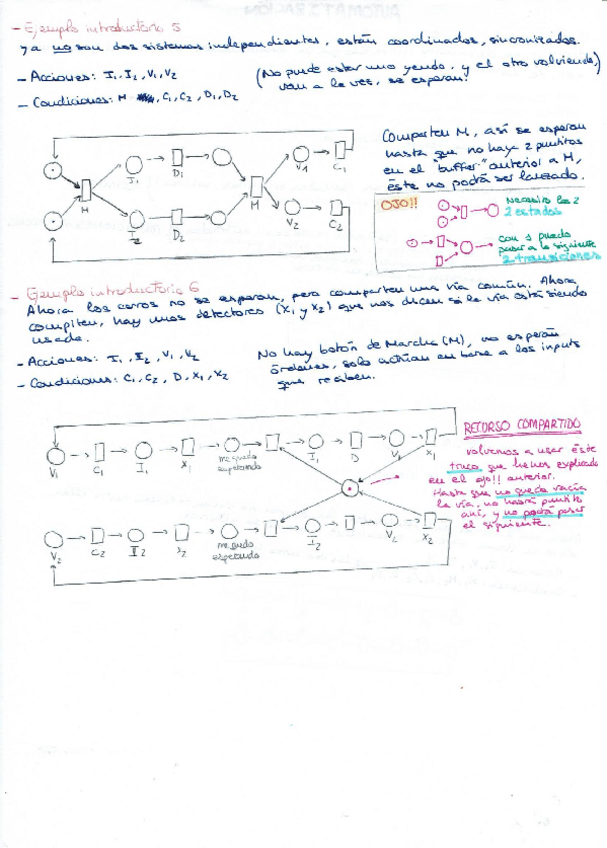 - Ejemplo introductorio 5
ya no son dos sistemas independientes, están coordinados, sincronizados.
- Acciones: I₁, I₂, V₁, V₂
(No puede estar uno yendo, y el otro volviendo,
van a la vez, se esperan.)
- Condiciones: M, C₁, C₂, D₁, D₂
Comparten M, así se esperan
hasta que no haya 2 puntitos
en el "buffer" anterior a M,
éste no podrá ser lanzado.
I₁ D₁ V1 C₁
M M
I₂ D₂ V₂ C₂
OJO!!
Necesito los 2
2 estados
con 1 puedo
pasar a la siguiente
2 transiciones
- Ejemplo introductorio 6
Ahora los carros no se esperan, pero comparten una vía común. Ahora
compiten, hay unos detectores (X₁ y X₂) que nos dicen si la vía está siendo
usada.
- Acciones: I₁, I₂, V₁, V₂
- Condiciones: C₁, C₂, D, X₁, X₂
No hay botón de Marcha (M), no esperan
órdenes, solo actúan en base a los inputs
que reciben.
V₁ C₁ I₁ X₁ me quedo esperando I₁ D V₁ X₁
RECURSO COMPARTIDO
volvemos a usar éste
truco que hemos explicado
en el ojo!! anterior.
Hasta que no queda vacía
la vía, no habrá puntito
ahí, y no podrá pasar
el siguiente.
V₂ C₂ I2 X₂ me quedo esperando I₂ V₂ X₂